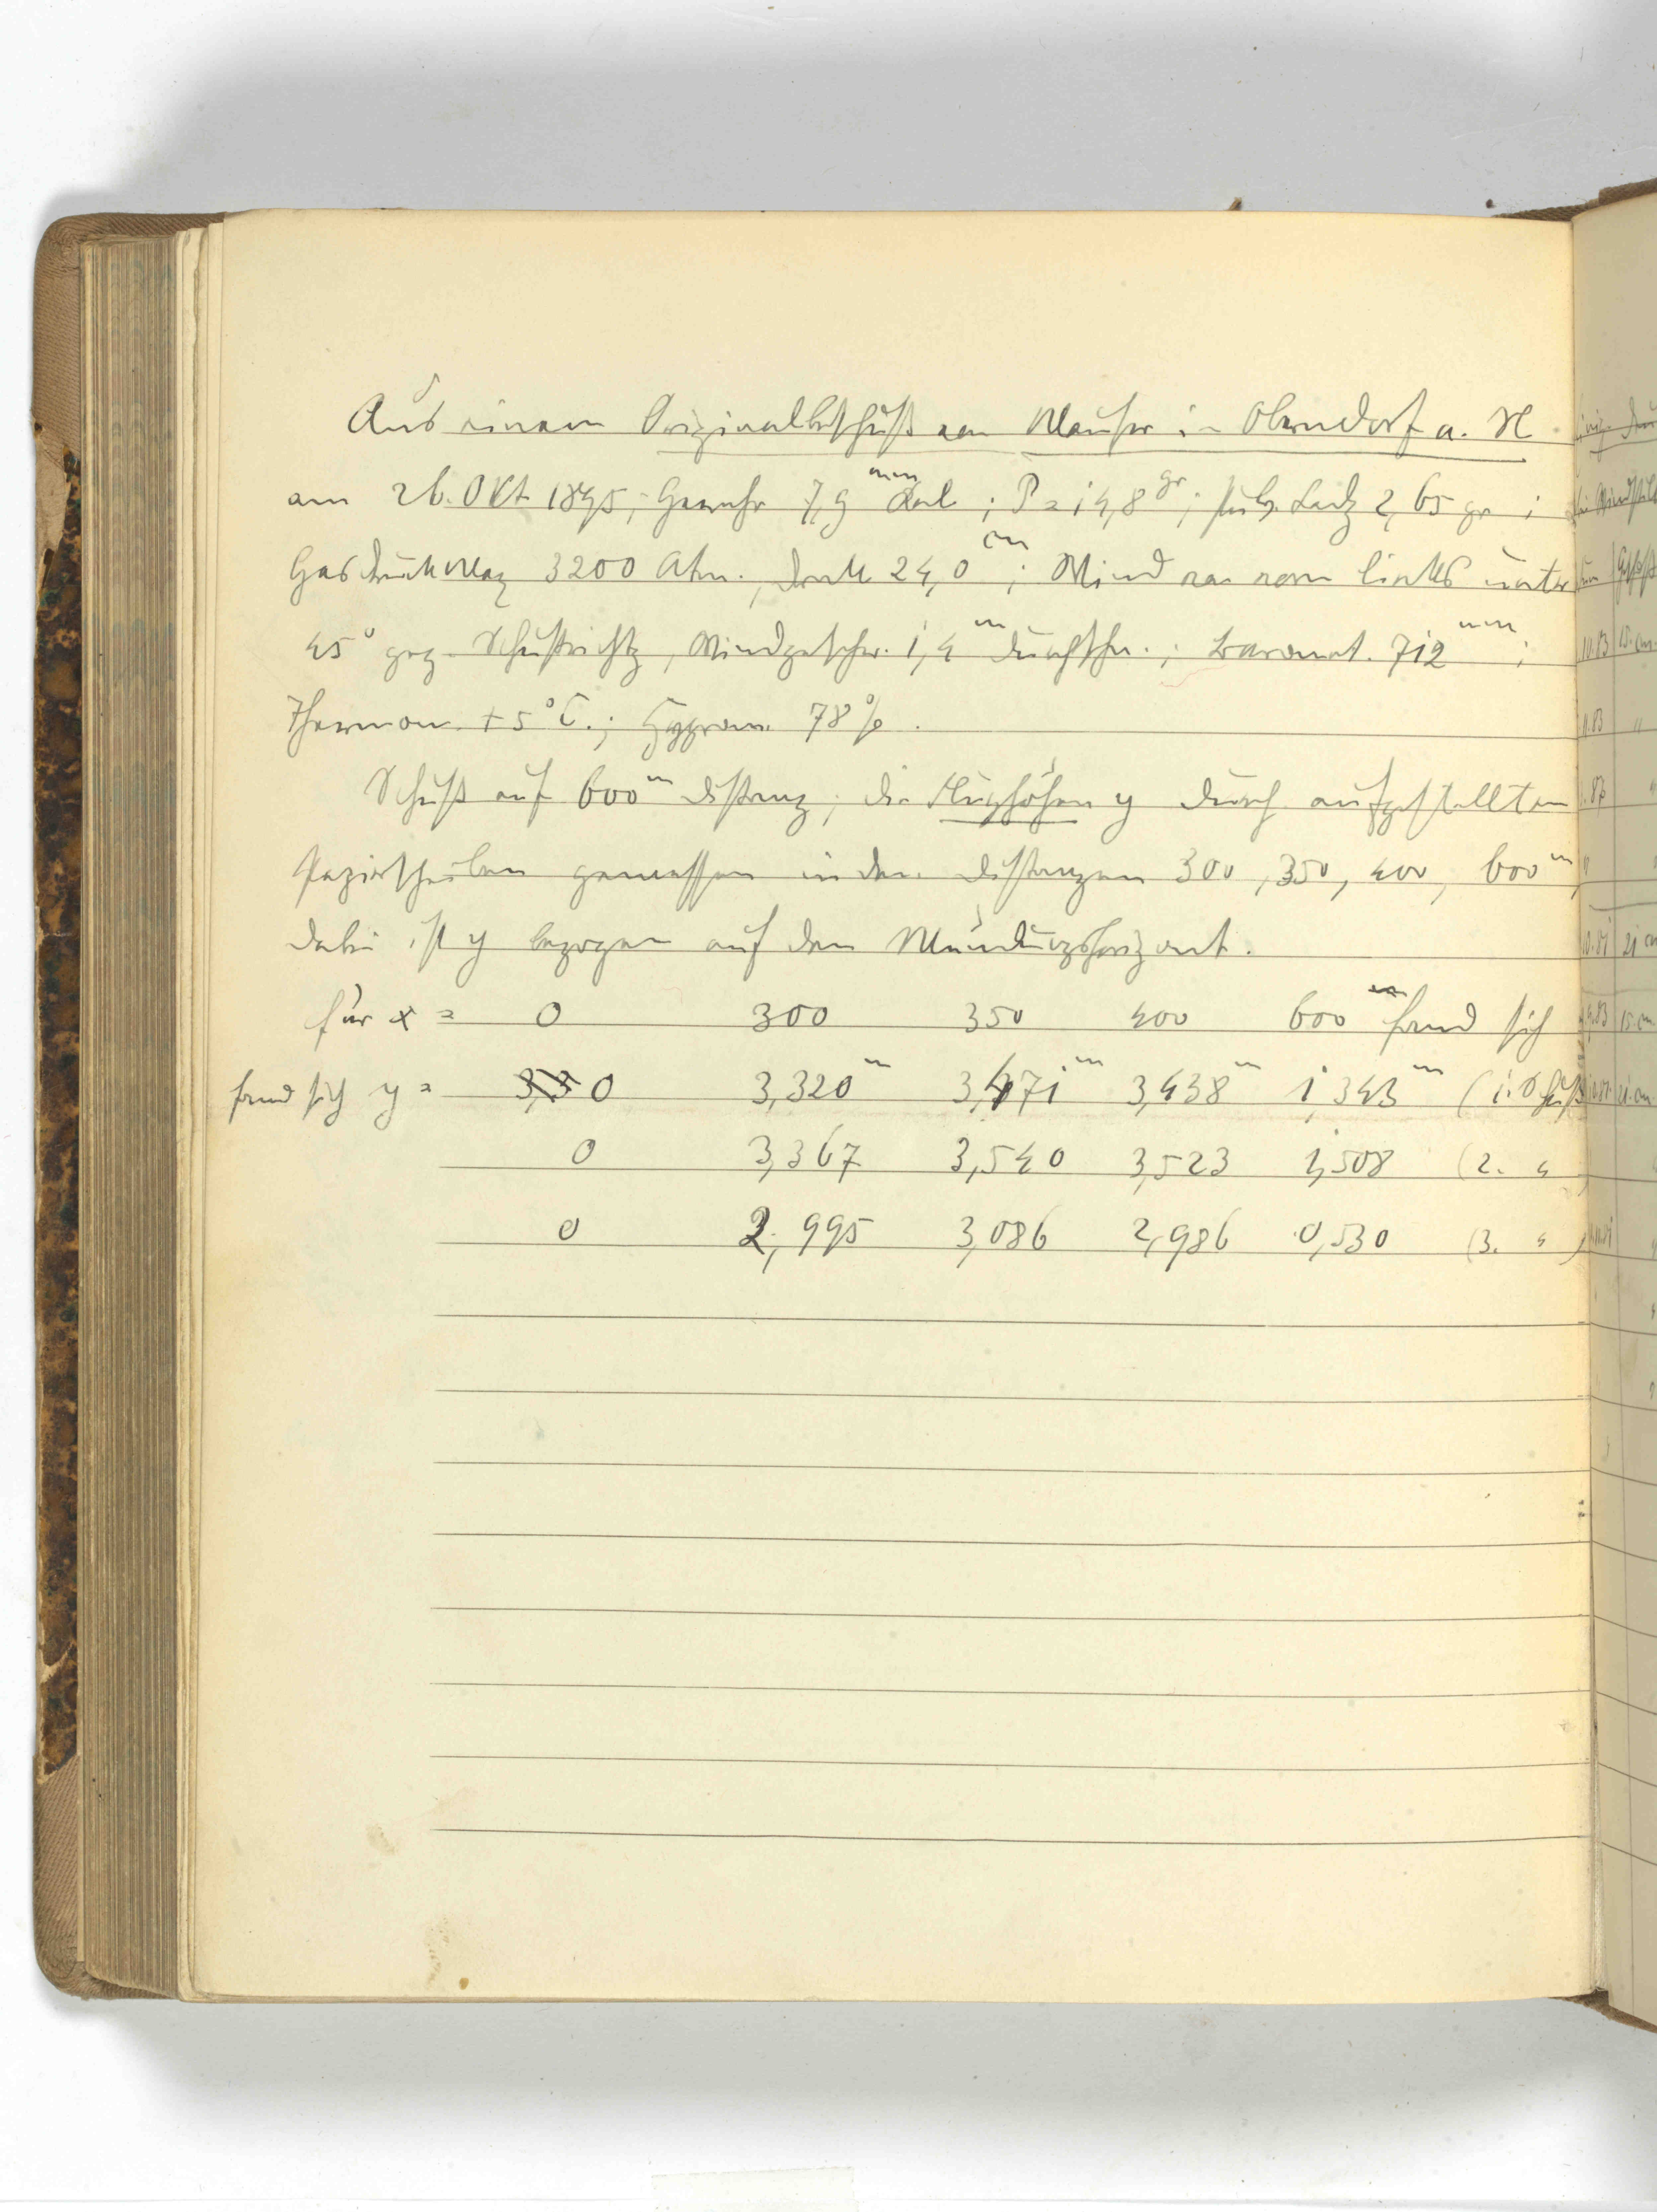 Aus einem Originalbeschuß von Mauser in Oberndorf a. N
am 26. Okt. 1895; Gewehr 7,9 mm Kal; P = 14,8 gr; Pulv. Ladg 2,65 gr;
Gasdruck Max 3200 Atm., 24,0 cm; Wind von vorn links unter
45° geg. Schußrichtg, Windgeschw. 1,4 m durchschn.; Baromet. 712 mm;
Thermom. +5° C.; Hygrom. 78 %.
Schuß auf 600 m Distanz; die Flughöhen y durch aufgestellten
Papierscheiben gemessen in den Distanzen 300, 350, 400, 600 m,
dabei ist y bezogen auf den Mündungshorizont.
für x = 0 300 350 400 600 m fand sich
fand sich y = 0 3,320 m 3,471 m 3,438 m 1,343 m (1. Schuß
0 3,367 3,540 3,523 1,508 (2. "
0 2,995 3,086 2,986 0,530 (3. " )